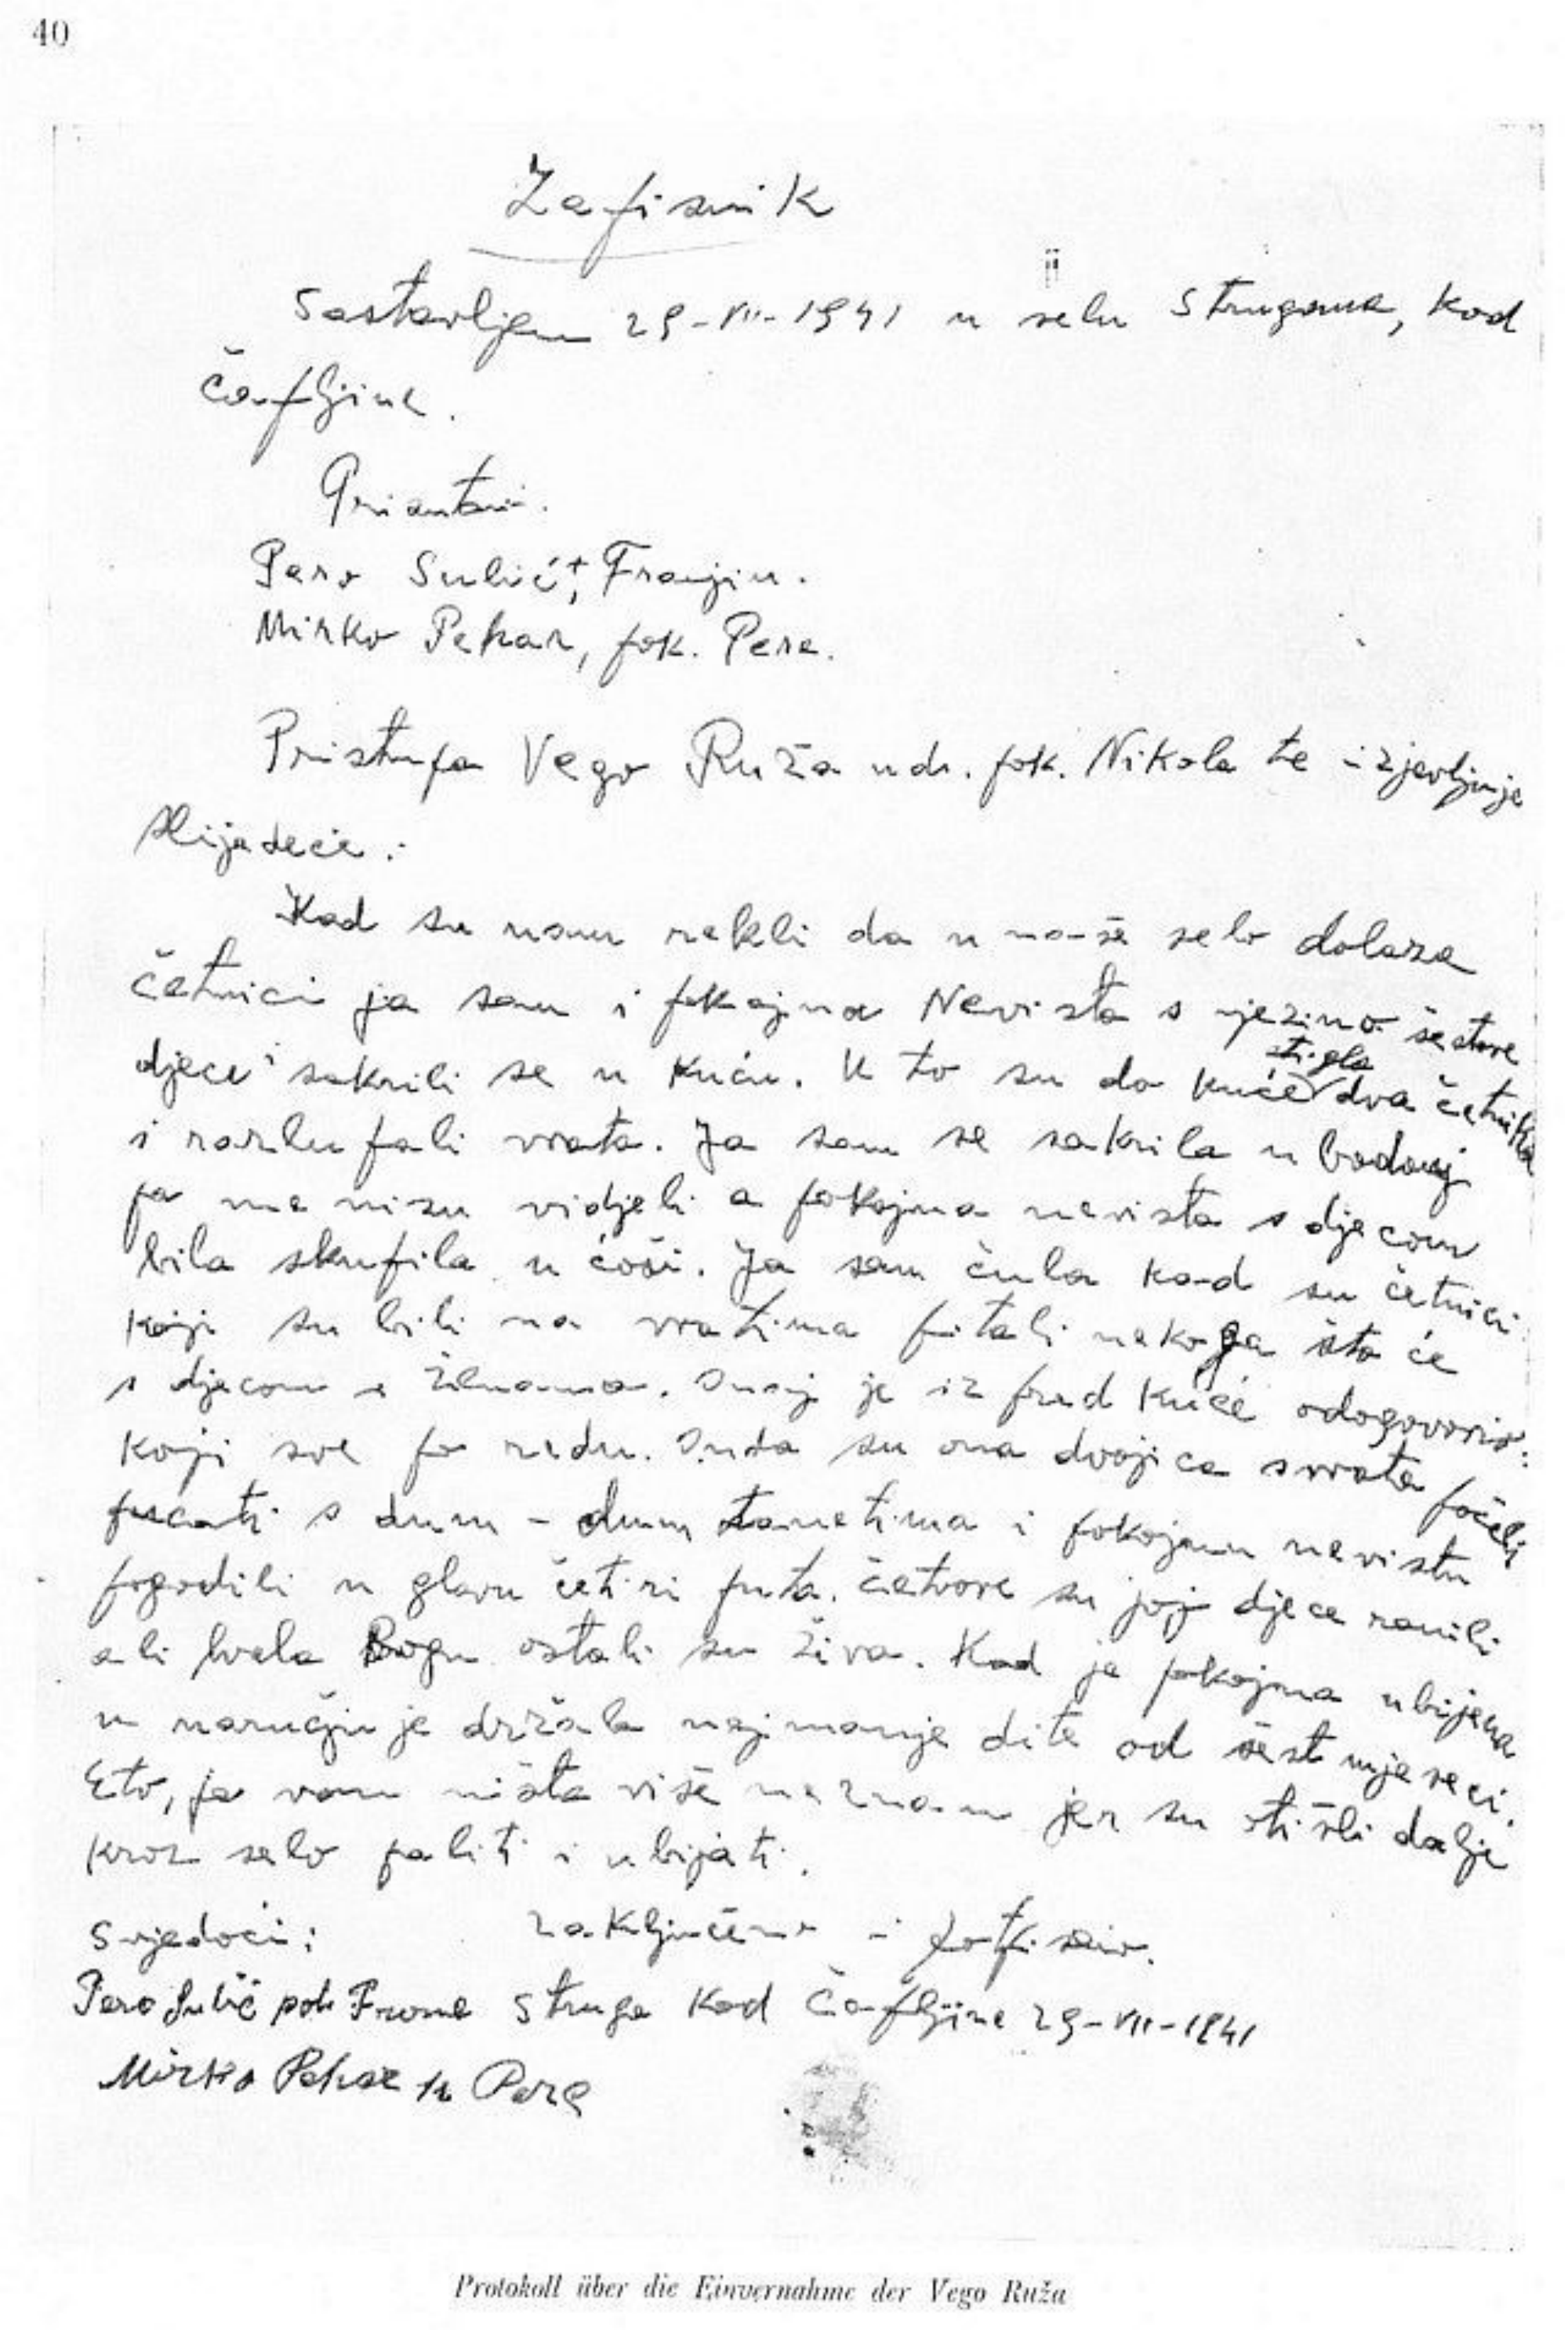 40
Zapisnik
Sastavljen 29-VII-1941 u selu Strugama, kod
Čapljine.
Prisutni.
Pero Sulić, Franjin.
Mirko Pehar, pok. Pere.
Pristupa Vego Ruža ud. pok. Nikole te izjavljuje
slijedeće:
Kad su nam rekli da u naše selo dolaze
četnici ja sam i pokojna Nevista s njezino šestore
djece sakrili se u kuću. U to su do kuće stigla dva četnika
i razlupali vrata. Ja sam se sakrila u badanj
pa me nisu vidjeli a pokojna nevista s djecom
bila skupila u ćoši. Ja sam čula kad su četnici
koji su bili na vratima pitali nekoga šta će
s djecom i ženama. Onaj je iz pred kuće odogovorio:
Koji sve po redu. Onda su ona dvojica s vrata počeli
pucati s dum-dum tanetima i pokojnu nevistu
pogodili u glavu četiri puta. Četvore su joj djece ranili
ali hvala Bogu ostali su živa. Kad je pokojna ubijena
u naručju je držala najmanje dite od šest mjeseci.
Eto, ja vam ništa više ne znam jer su otišli dalje
kroz selo paliti i ubijati.
Svjedoci: zaključeno i potpisano.
Pero Sulić pok Frane Struge kod Čapljine 29-VII-1941
Mirko Pehar Pere
Protokoll über die Einvernahme der Vego Ruža